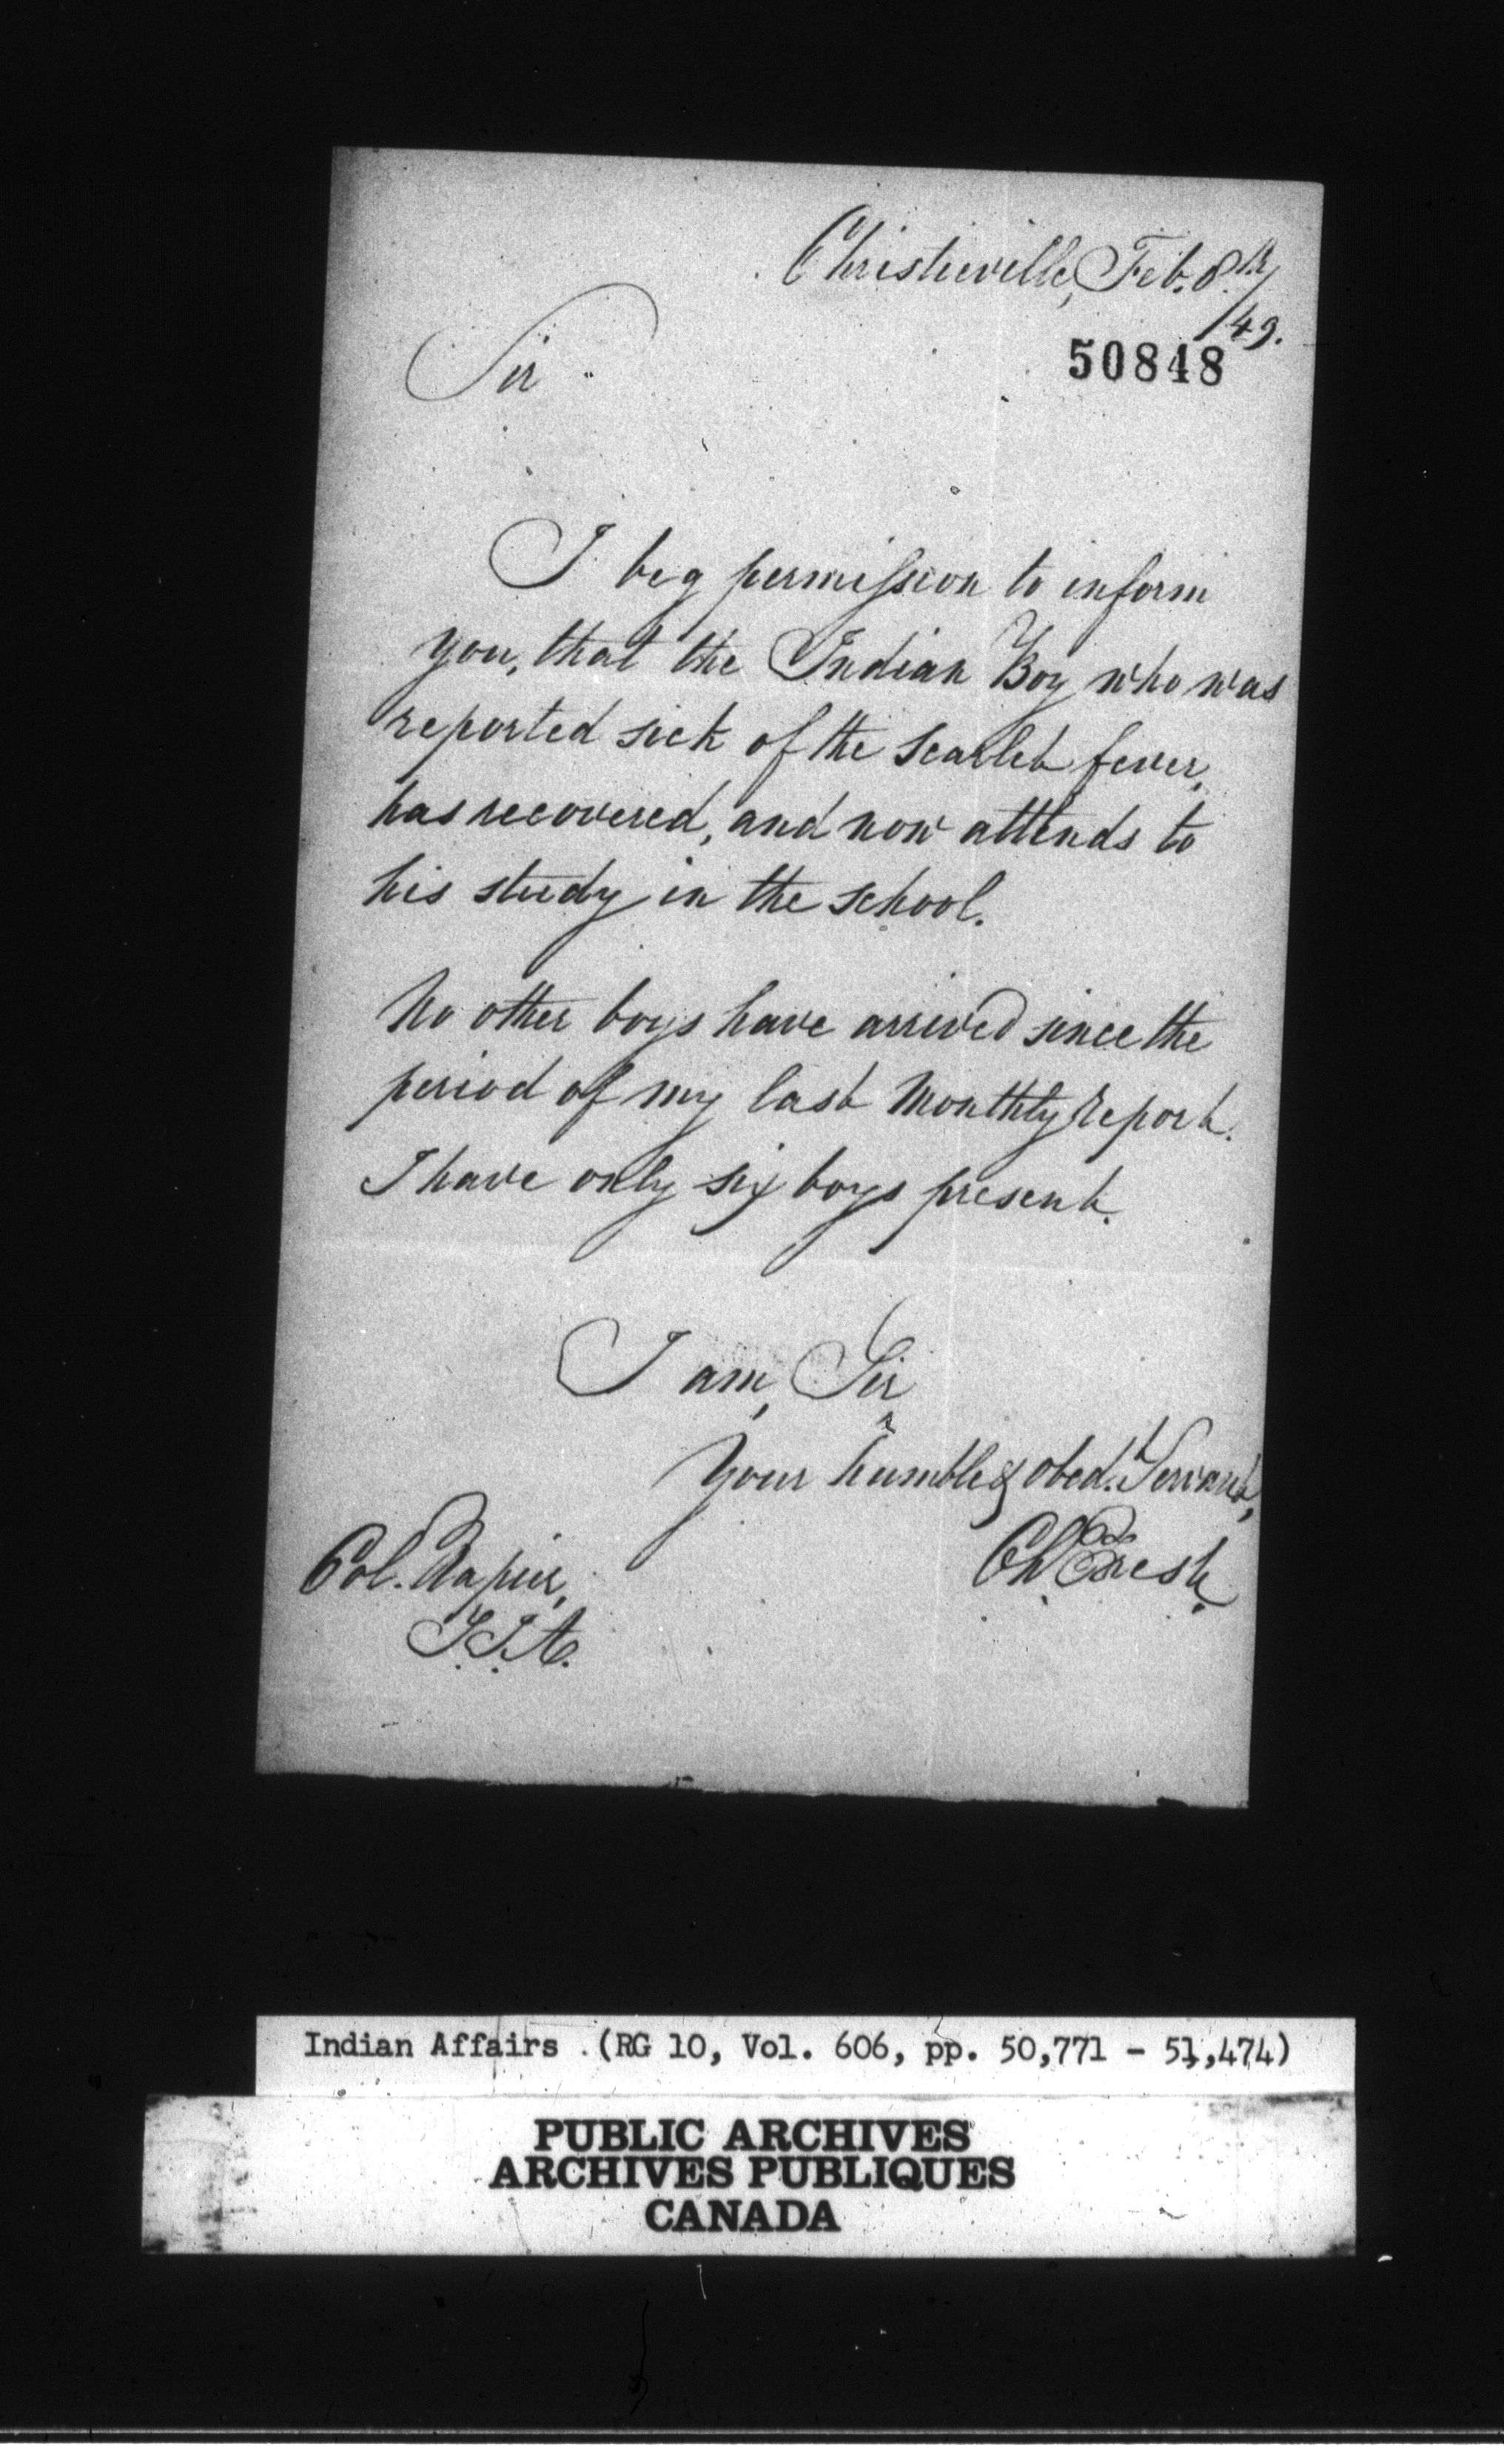 Christieville, Feb. 8th/
/49.
50848
Sir
I beg permission to inform
you, that the Indian Boy who was
reported sick of the Scarlet fever,
has recovered, and now attends to
his study in the school.
No other boys have arrived since the
period of my last Monthly report.
I have only six boys present.
I am, Sir,
Your humble & obed.t Servant,
Ch.
Col. Napier,
Indian Affairs (RG 10, Vol. 606, pp. 50,771 - 51,474)
PUBLIC ARCHIVES
ARCHIVES PUBLIQUES
CANADA